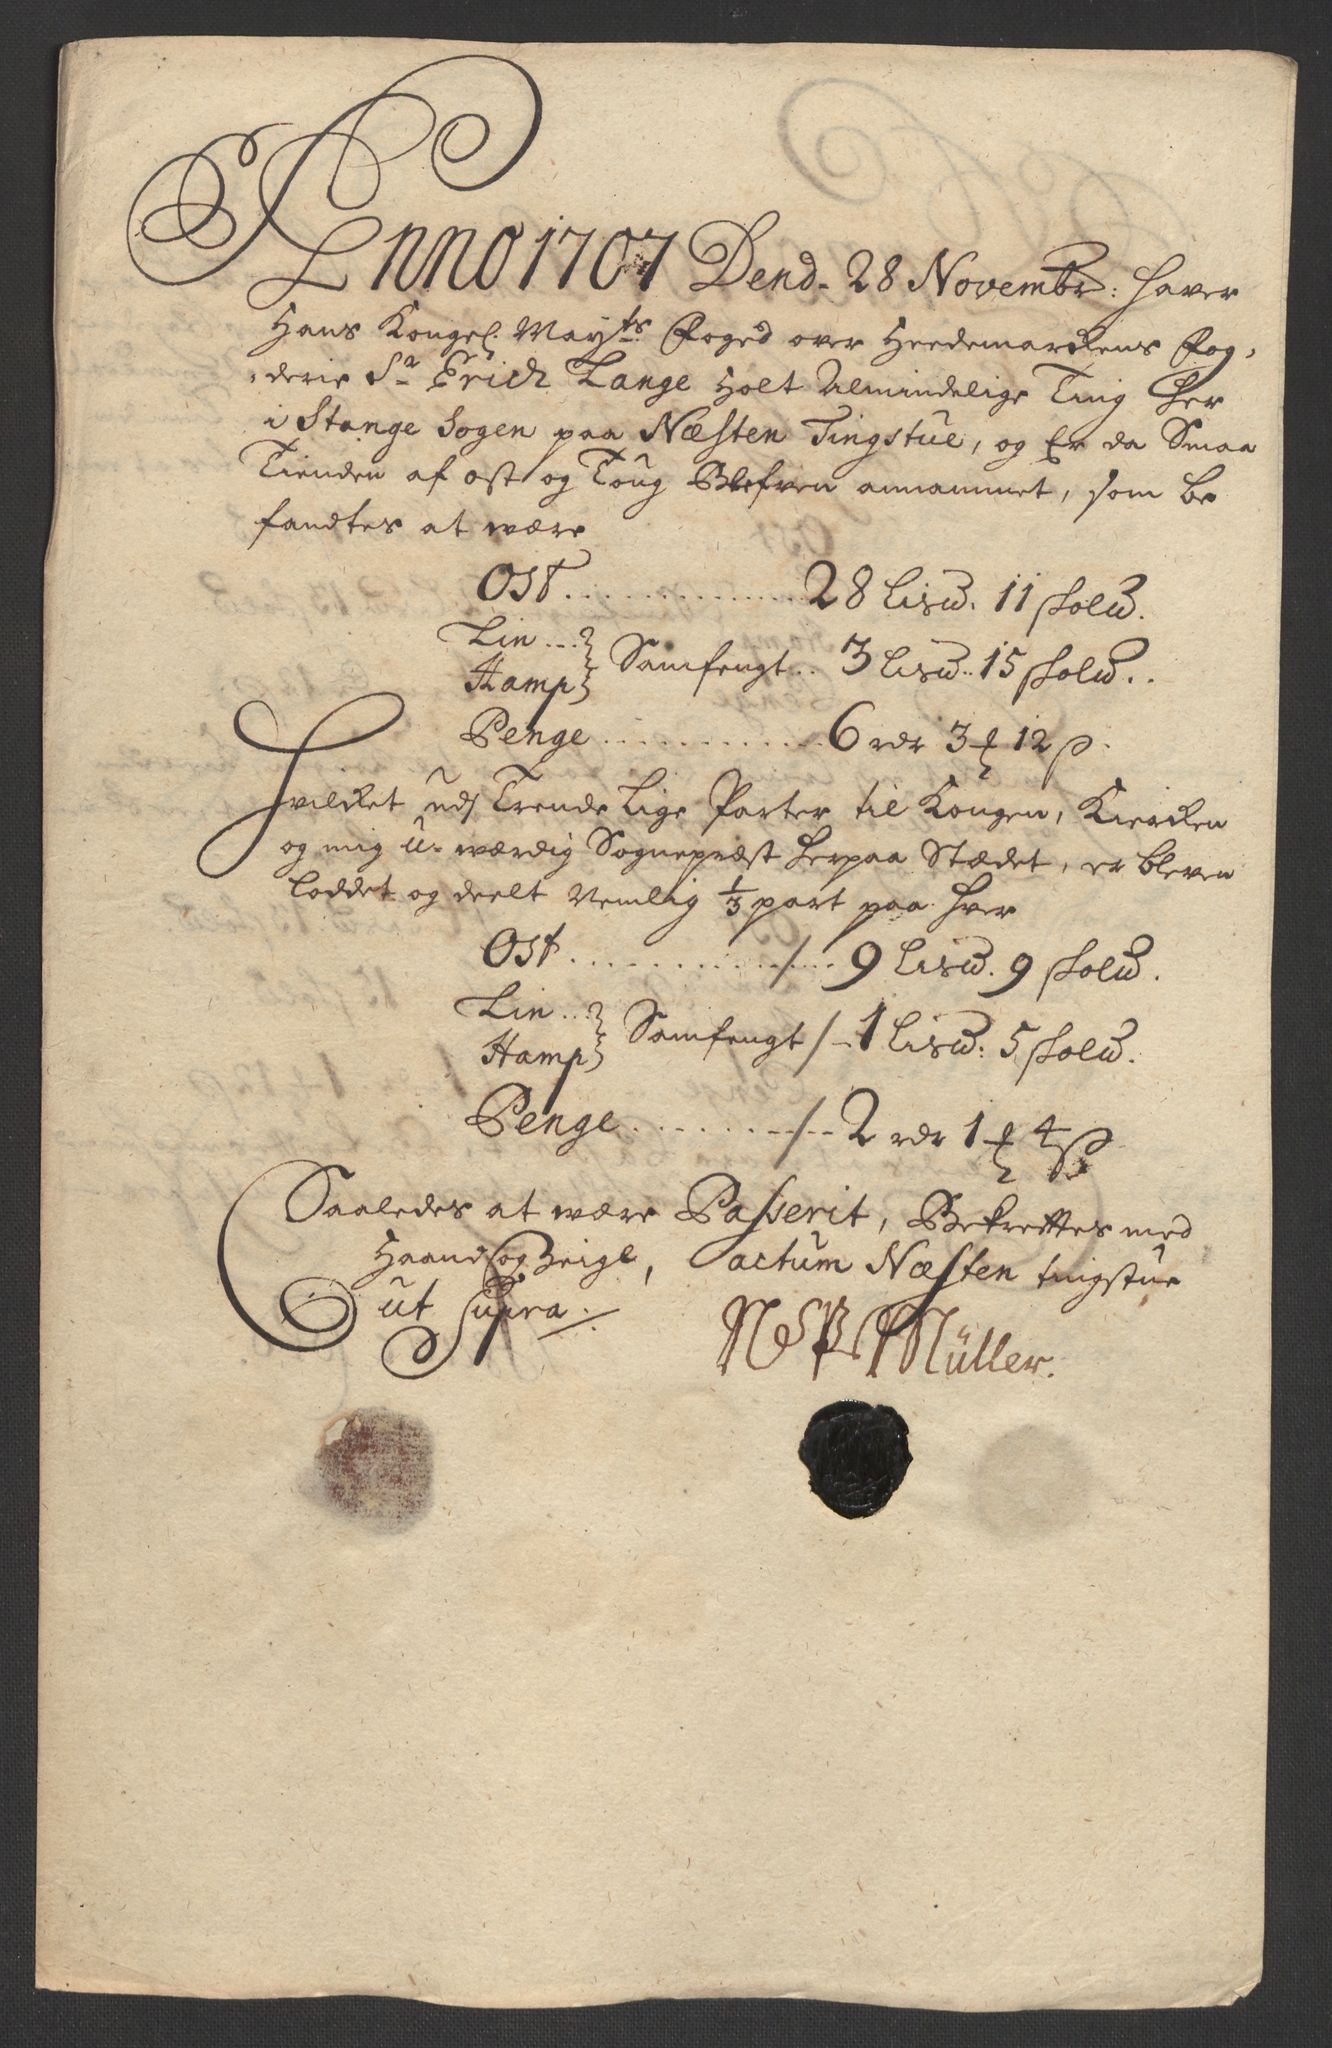 Anno 1707 Dend. 28 Novembr: haver
Hans Kongel. Mayts. Foged over Heedemarckens Fog-
-derie Sr Erich Lange Holt Almindelige Ting her
i Stange Sogen paa Næsten Tingstue, og Er da Smaa
Tienden af ost og Toug Blefven annammet, som be
fandtes at wære
Ost ............. 28 Lisw. 11 skolw.
Lin ...
Hamp } Samfengt .. 3 Lisw. 15 skolw..
Penge ............ 6 rdr 3 ƒ 12 β.
Hvilcket udj Trende Lige Parter til Kongen, Kiercken
og mig u-wærdig Sognepræst herpaa Stædet, er bleven
Loddet og deelt Nemlig 1/3 part paa hver
Ost ............ /.... 9 Lisw. 9 skolw.
Lin ...
Hamp } Samfengt /- 1 Lisw: 5 skolw.
Penge ......... /... 2 rdr 1 ƒ 4 β
Saaledes at wære Passerit, Bekreftes med
Haand og Zeigl, actum Næsten tingstue
ut Supra.
Müller.